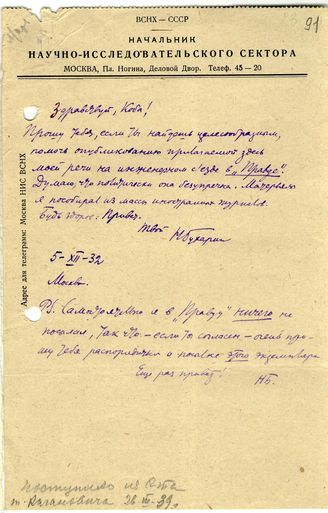 ВСНХ — СССР
91
НАЧАЛЬНИК
НАУЧНО-ИССЛЕДОВАТЕЛЬСКОГО СЕКТОРА
МОСКВА, Пл. Ногина, Деловой Двор. Телеф. 45 — 20
Адрес для телеграмм: Москва НИС ВСНХ
Здравствуй, Коба!
Прошу тебя, если ты найдешь целесообразным,
помочь опубликованию прилагаемой здесь
моей речи на инженерном с'езде в „Правде".
Думаю, что политически она безупречна. Материалы
я пособирал из массы иностранных журналов.
Будь здоров. Привет.
Твой Н Бухарин
5-XII-32
Москва.
PS. Самостоятельно я в „Правду" ничего не
посылал, так что — если ты согласен — очень про-
шу тебя распорядиться о посылке этого экземпляра
Еще раз привет!
НБ.
Поступило из
т. Кагановича 26 III-39 г.